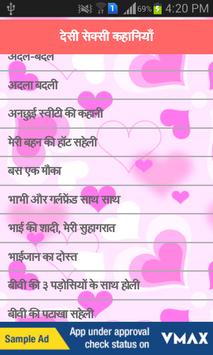 69% 4:20 PM
देसी सेक्सी कहानियाँ
अदल-बदल
अदला बदली
अनछुई स्वीटी की कहानी
मेरी बहन की हॉट सहेली
बस एक मौका
भाभी और गर्लफ्रेंड साथ साथ
भाई की शादी, मेरी सुहागरात
भाईजान का दोस्त
बीवी की ३ पड़ोसियों के साथ होली
बीवी की पटाखा सहेली
Sample Ad App under approval check status on VMAX